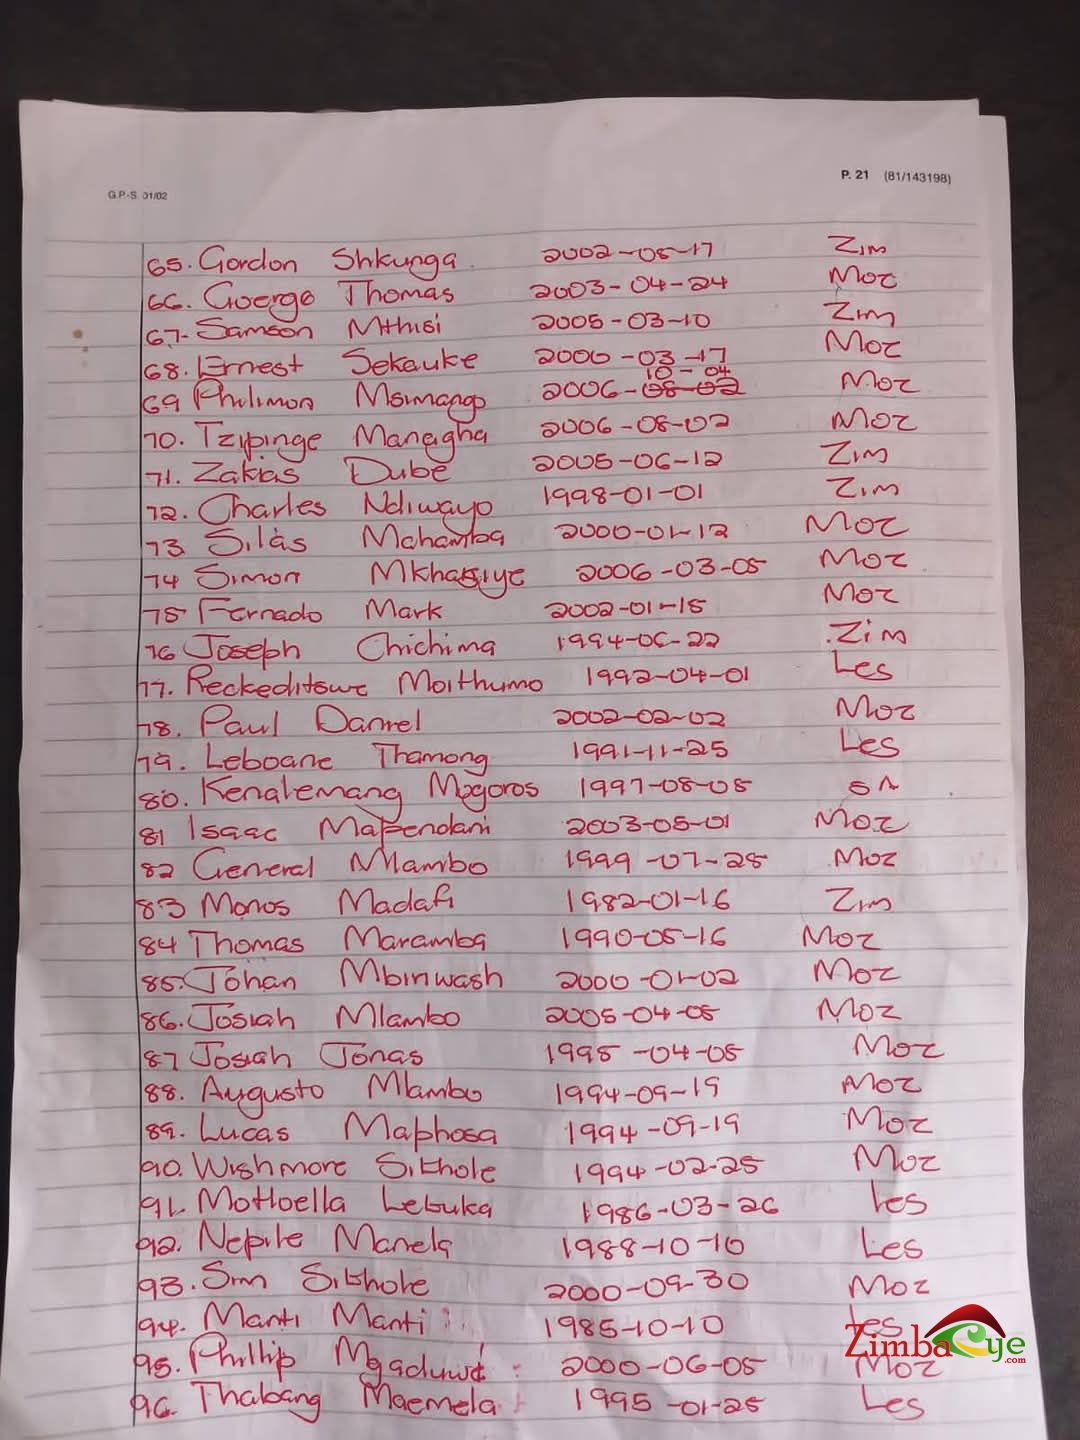 G.P.-S. 01/02
P. 21 (81/143198)
65. Gordon Shkunga 2002-05-17 Zim
66. Goerge Thomas 2003-04-24 Moz
67- Samson Mthisi 2005-03-10 Zim
68. Ernest Sekauke 2000-03-17 Moz
10-04
69 Philimon Msimango 2006-08-02 Moz
70. Tzipinge Managha 2006-08-02 Moz
71. Zakias Dube 2005-06-12 Zim
72. Charles Ndiwayo 1998-01-01 Zim
73 Silas Mahamba 2000-01-12 Moz
74 Simon 2006-03-05 Moz
75 Fernado Mark 2002-01-15 Moz
76 Joseph Chichima 1994-06-22 Zim
77. Moithumo 1992-04-01 Les
78. Paul Daniel 2002-02-02 Moz
79. Leboane Thamong 1991-11-25 Les
80. Kenalemang Mogoros 1997-08-05 SA
81 Isaac Mapendani 2003-05-01 Moz
82 General Mlambo 1999-07-25 Moz
83 Monos Madafi 1982-01-16 Zim
84 Thomas Maramba 1990-05-16 Moz
85. Johan Mbinwash 2000-01-02 Moz
86. Josiah Mlambo 2005-04-05 Moz
87 Josiah Jonas 1995-04-05 Moz
88. Augusto Mlambo 1994-09-19 Moz
89. Lucas Maphosa 1994-09-19 Moz
90. Wishmore Sithole 1994-02-25 Moz
91. Motloella Lebuka 1986-03-26 Les
92. Nepile Manela 1988-10-10 Les
93. Sim Sithole 2000-09-30 Moz
94. Manti Manti 1985-10-10 Les
95. Phillip 2000-06-05 Moz
96. Thabang Maemela 1995-01-25 Les
ZimbaEye.com